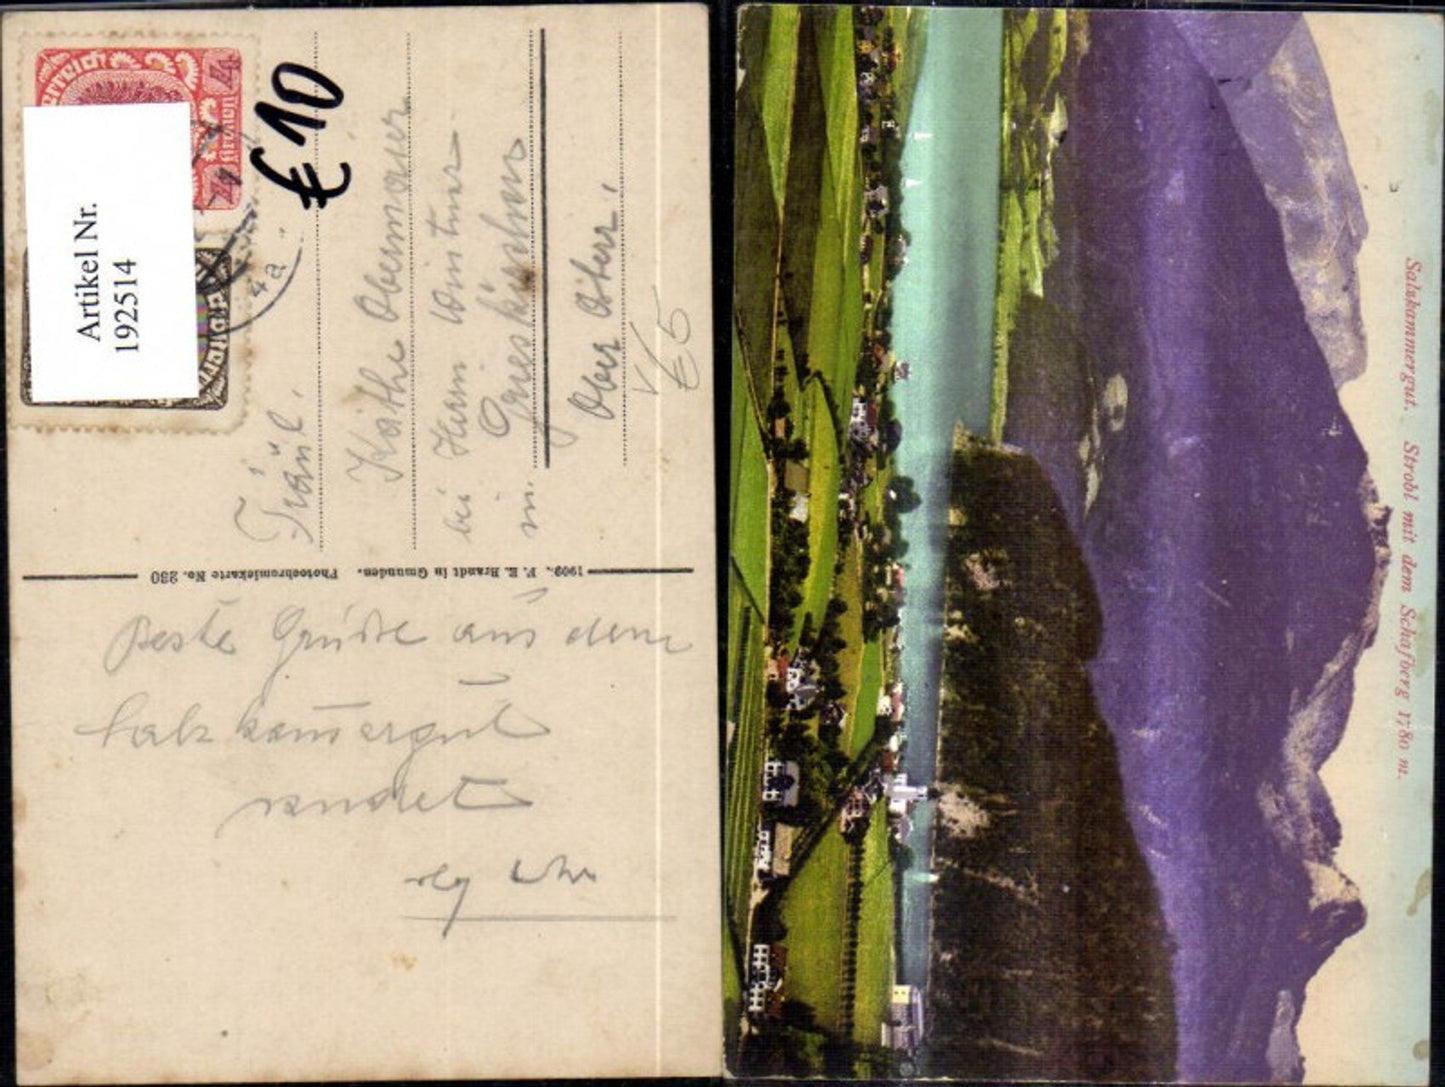 4
4
Kronen
Artikel Nr.
192514
€10
4a
Fräul.
Käthe Obermauer
bei Herrn Winter
in Grieskirchen
Ober Österr.
€5
1909. F. E. Brandt in Gmunden. Photochromiekarte No. 230
Beste Grüße aus dem
Salzkammergut
sendet
Salzkammergut. Strobl mit dem Schafberg 1780 m.